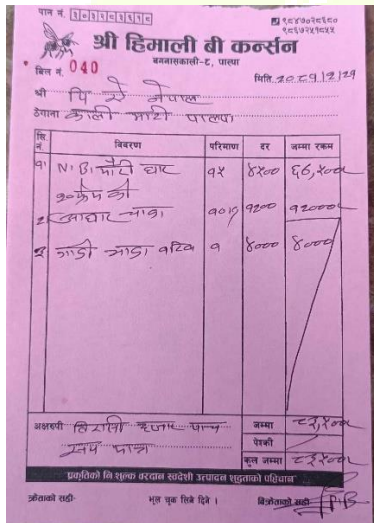 पान नं.
श्री हिमाली बी कर्न्सन
बगनासकाली-८, पाल्पा
बिल नं. 040
मिति २०८१/२/२९
श्री पि ऐ नेपाल
ठेगाना काली माटी पाल्पा
सि. नं. विवरण परिमाण दर जम्मा रकम
१ N.B. मौरी घार १५ ४५०० ६७,५००
१० फ्रेम को
२ आधार चाका १२०० १२०००
३ गाडी भाडा १ ४००० ४०००
अक्षरुपी त्रियासी हजार पाँच जम्मा ८३,५००
सय मात्र पेश्की
कूल जम्मा ८३५००
प्रकृतिको नि शुल्क वरदान स्वदेशी उत्पादन शुद्धताको पहिचान
क्रेताको सही भूल चुक लिने दिने । बिक्रेताको सही